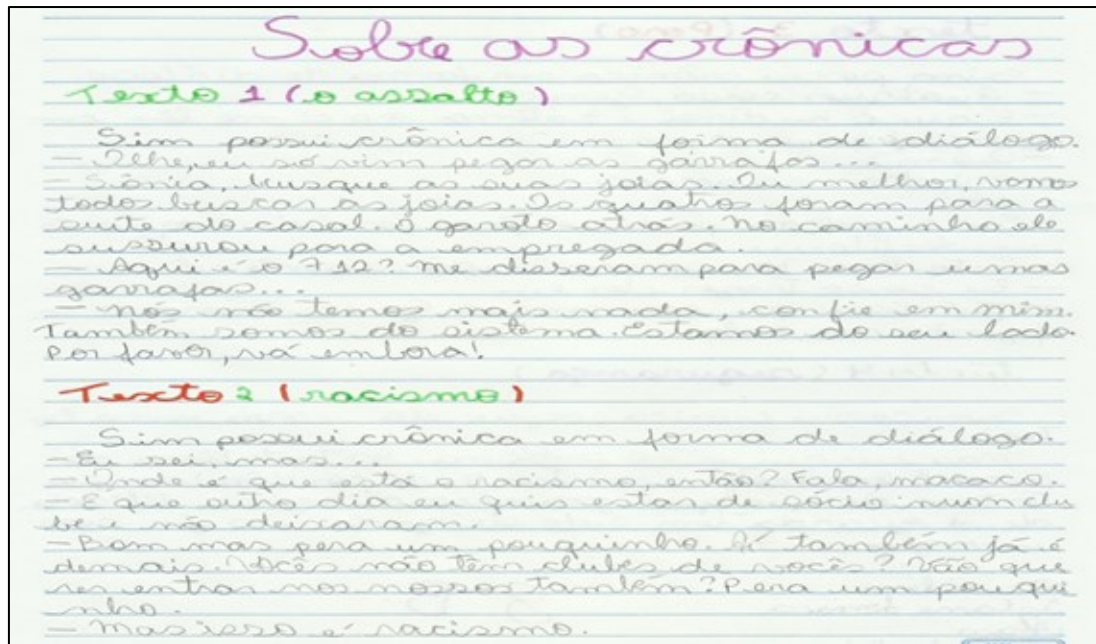 Sobre as crônicas
Texto 1 (o assalto)
Sim possui crônica em forma de diálogo.
- Olhe, eu só vim pegar as garrafas...
- Sônia, busque as suas joias. Ou melhor, vamos
todos buscar as joias. Os quatro foram para a
suite do casal. O garoto atrás. No caminho ele
sussurou para a empregada.
- Aqui é o 712? Me disseram para pegar umas
garrafas...
- Nós não temos mais nada, confie em mim.
Também somos do sistema. Estamos do seu lado.
Por favor, vá embora!
Texto 2 (racismo)
Sim possui crônica em forma de diálogo.
- Eu sei, mas...
- Onde é que está o racismo, então? Fala, macaco.
- É que outro dia eu quis estar de sócio num clu
be e não deixaram.
- Bom mas pera um pouquinho. Aí também já é
demais. Vocês não têm clubes de vocês? Vão que
rer entrar nos nossos também? Pera um pouqui
nho.
- Mas isso é racismo.